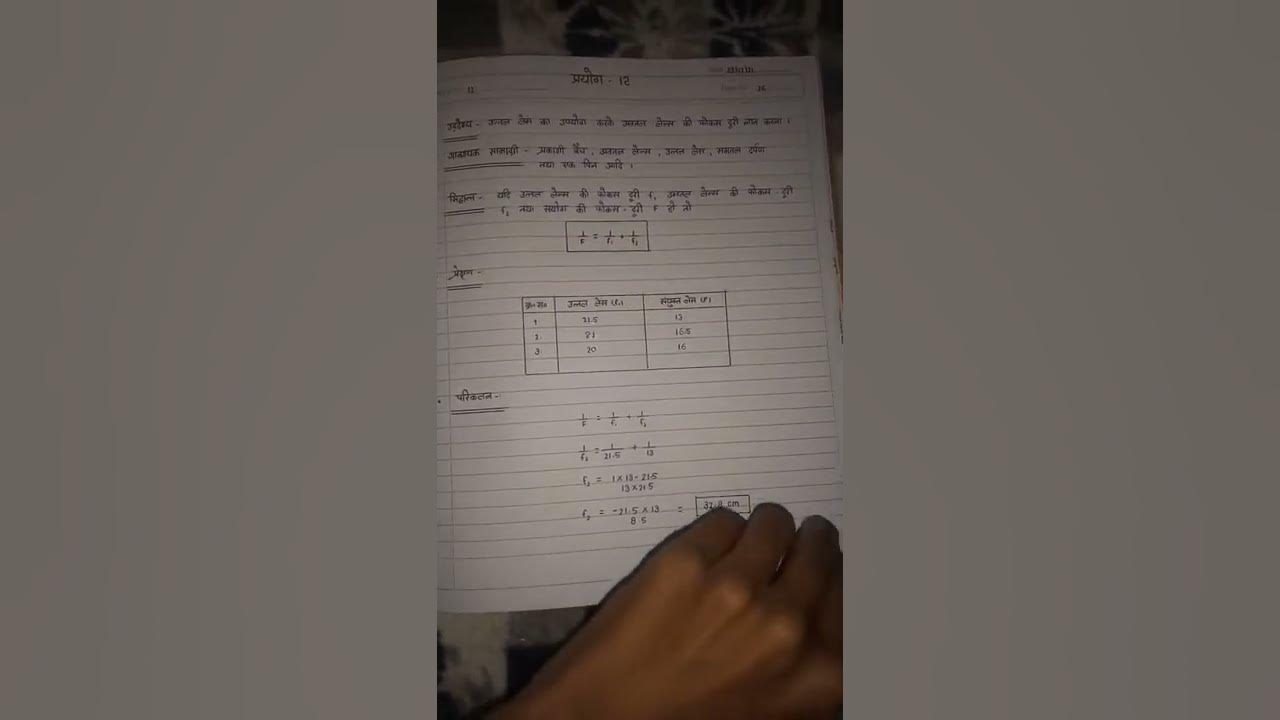 प्रयोग - 12
12
उद्देश्य - उत्तल लेंस का उपयोग करके अवतल लेन्स की फोकस दूरी ज्ञात करना ।
आवश्यक सामाग्री - प्रकाशी बेंच, अवतल लेन्स, उत्तल लेंस, समतल दर्पण
तथा एक पिन आदि ।
सिद्धान्त - यदि उत्तल लेन्स की फोकस दूरी f₁ अवतल लेन्स की फोकस-दूरी
f₂ तथा संयोग की फोकस-दूरी F हो तो
1/F = 1/f₁ + 1/f₂
प्रेक्षण -
क्र० स० उत्तल लेंस (f₁) संयुक्त लेंस (F)
1. 21.5 13
2. 21 16.5
3. 20 16
परिकलन -
1/F = 1/f₁ + 1/f₂
1/f₂ = 1/21.5 + 1/13
f₂ = 1×13-21.5/13×21.5
f₂ = -21.5×13/8.5 = cm